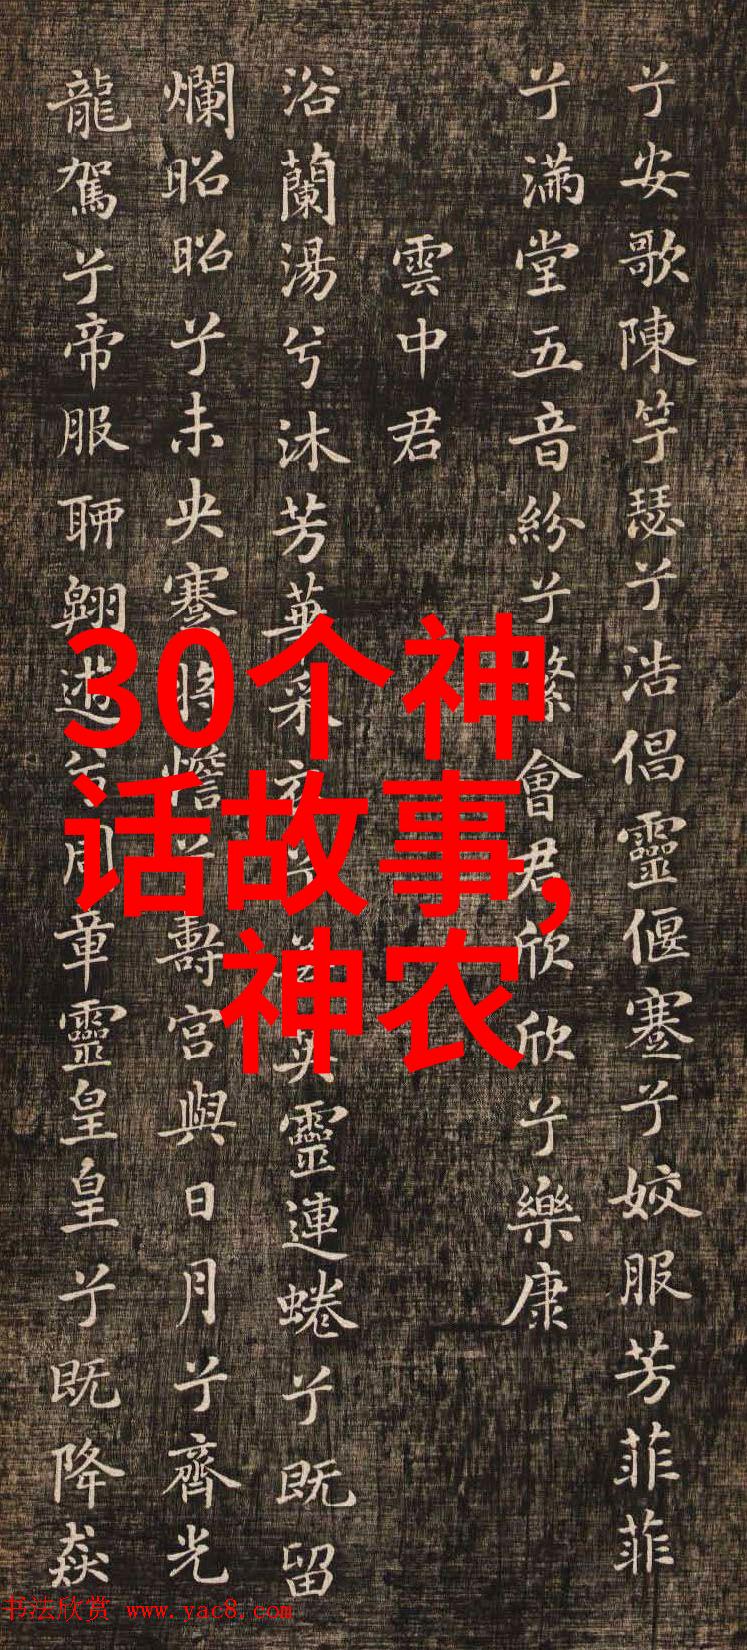 兮安歌陳竽瑟兮浩倡靈偃蹇兮姣服芳菲菲
兮滿堂五音紛兮繁會君欣欣兮樂康
雲中君
浴蘭湯兮沐芳華采衣兮英靈連蜷兮既留
爛昭昭兮未央蹇將憺兮壽宮與日月兮齊光
龍駕兮帝服聊翱遊兮周章靈皇皇兮既降猋
30个神
话故事,
神农
书法欣赏 www.yac8.com